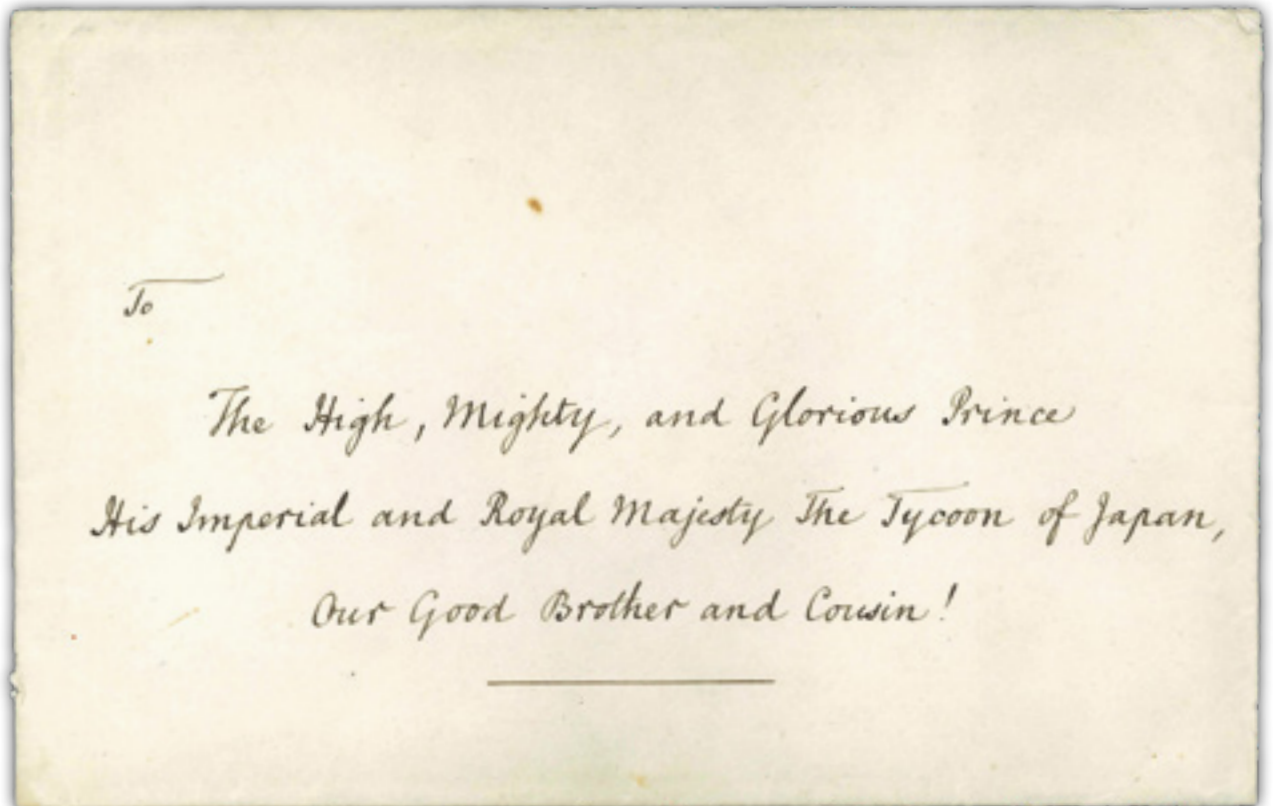 To
The High, Mighty, and Glorious Prince
His Imperial and Royal Majesty The Tycoon of Japan,
Our Good Brother and Cousin!